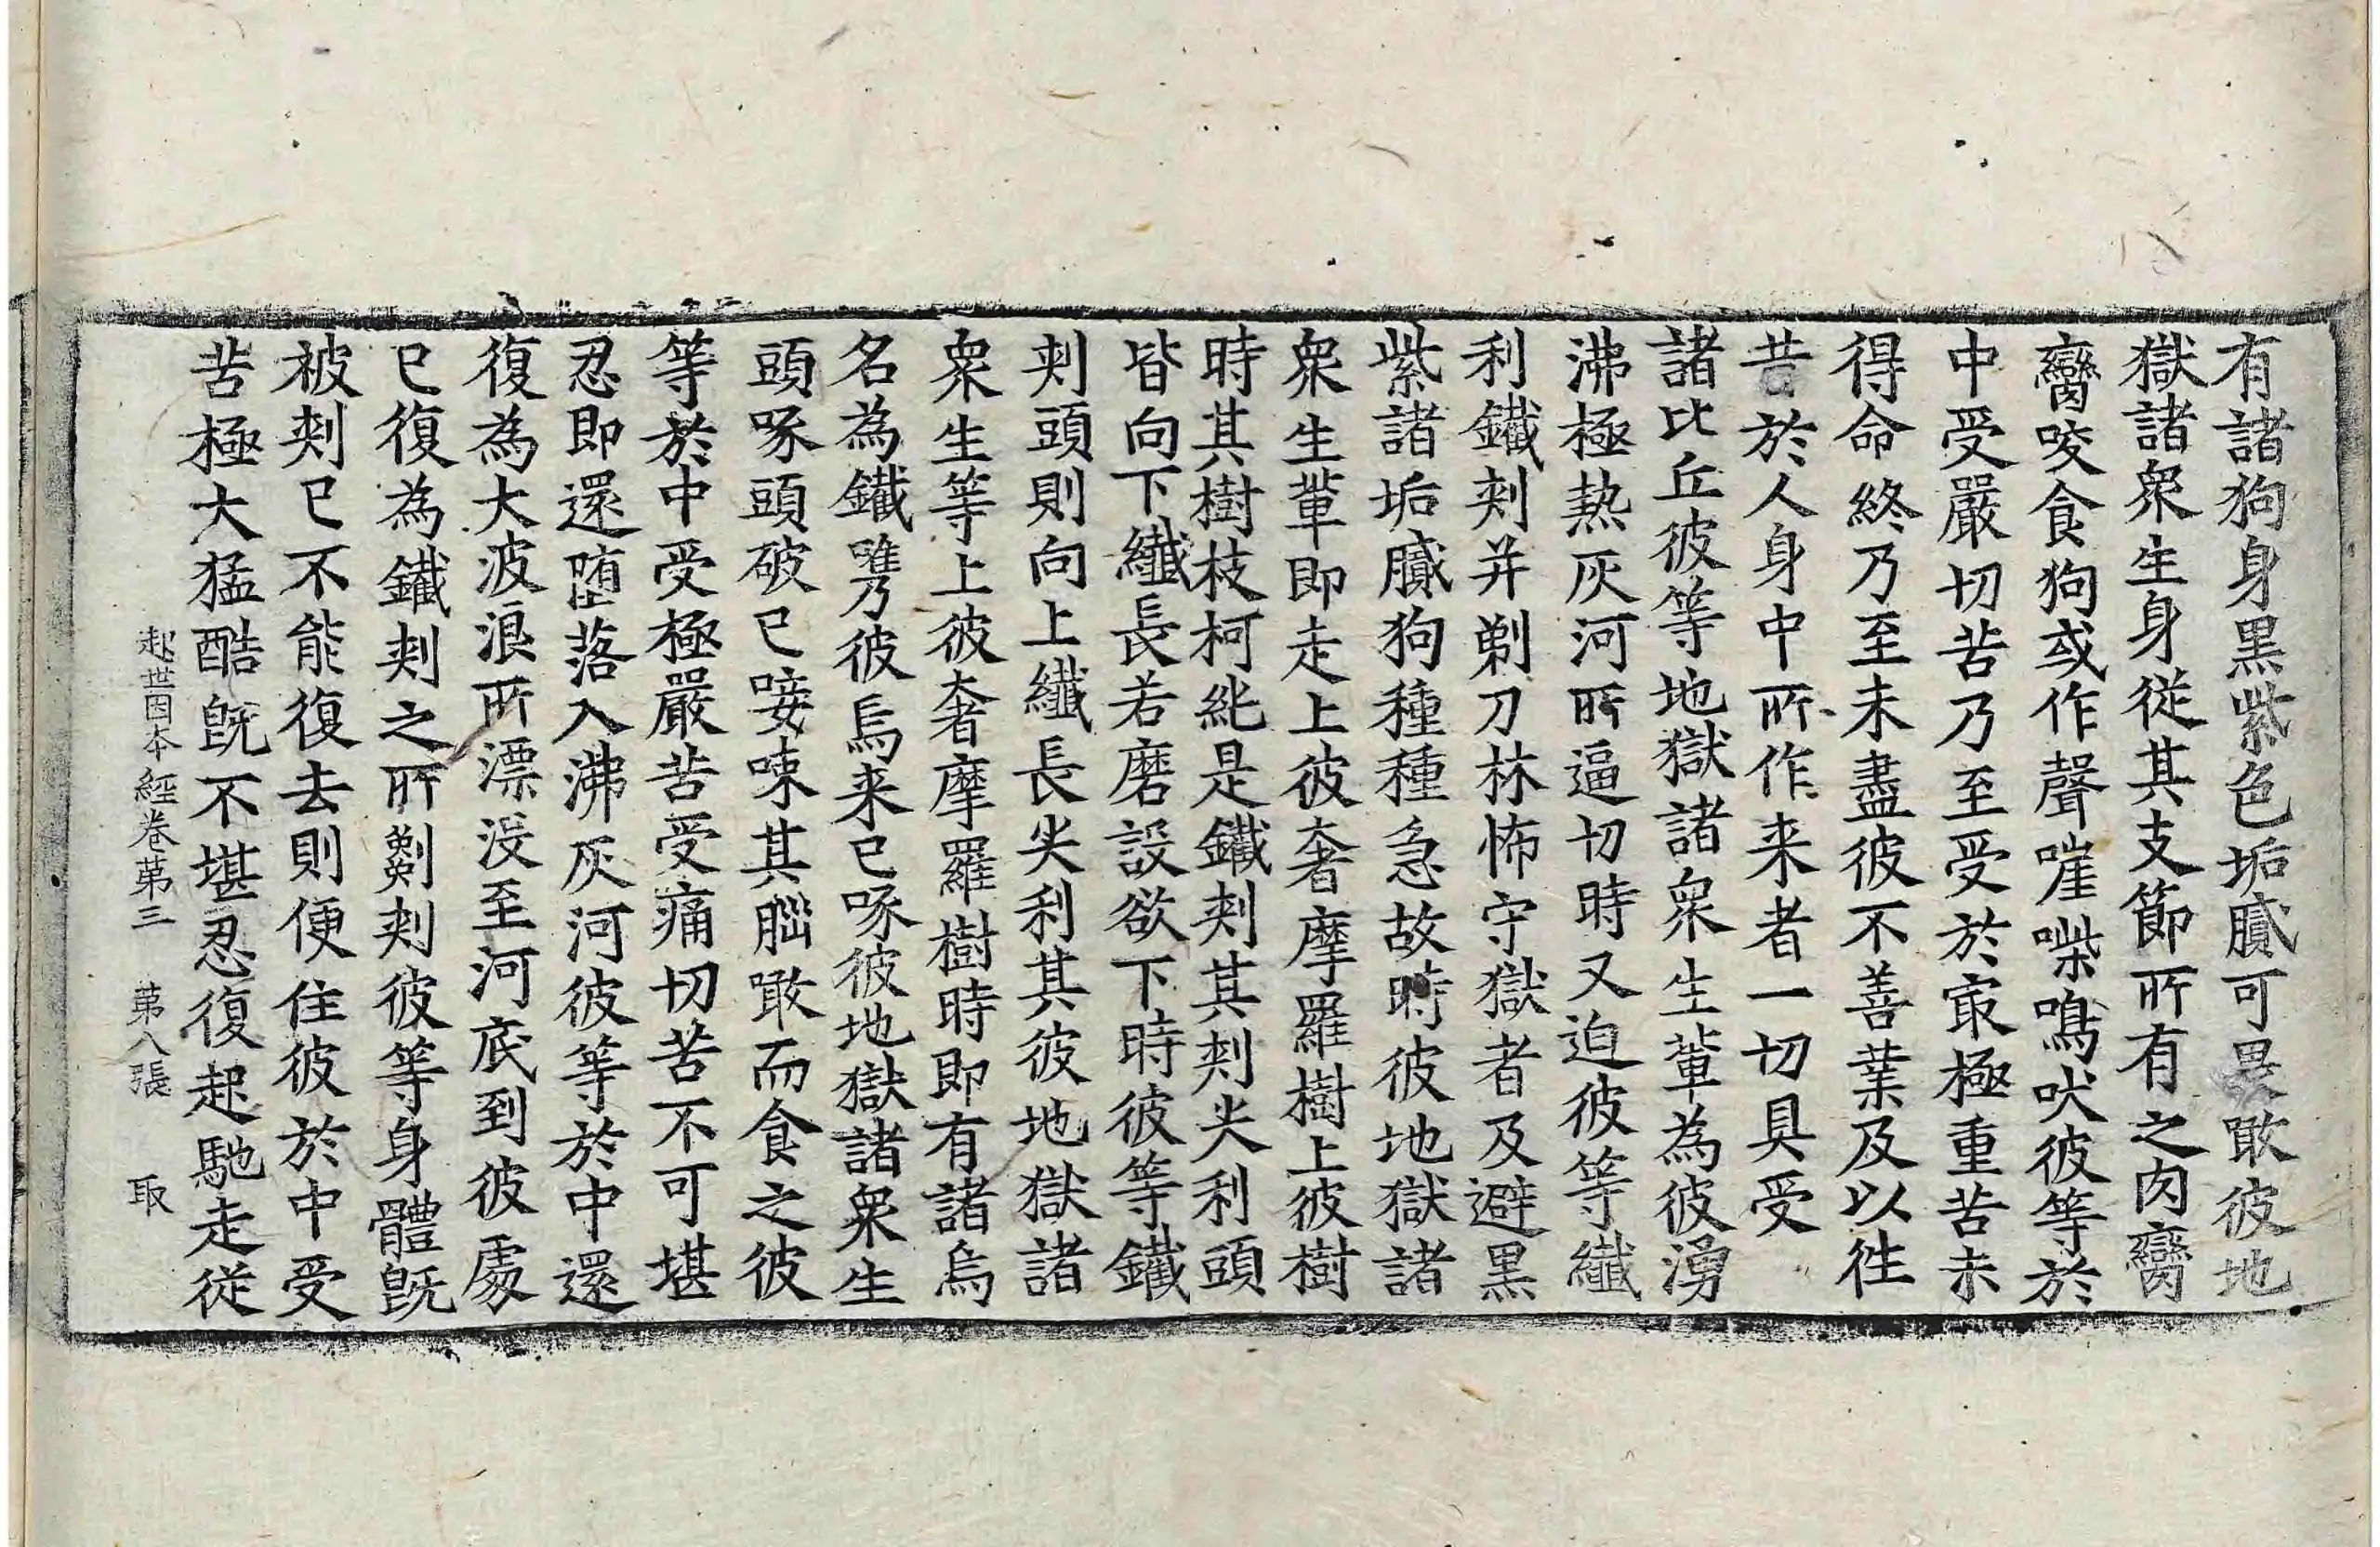 有諸狗身黑紫色垢膩可畏敢彼地
獄諸衆生身從其支節所有之肉臠
臠咬食狗或作聲嘊喍鳴吠彼等於
中受嚴切苦乃至受於㝡極重苦未
得命終乃至未盡彼不善業及以徃
昔於人身中所作来者一切具受
諸比丘彼等地獄諸衆生輩為彼湧
沸極熱灰河所逼切時又迫彼等纎
利鐵刾并剃刀林怖守獄者及避黑
紫諸垢膩狗種種急故時彼地獄諸
衆生輩即走上彼奢摩羅樹上彼樹
時其樹枝柯純是鐵刾其刾尖利頭
皆向下纎長若磨設欲下時彼等鐵
刾頭則向上纎長尖利其彼地獄諸
衆生等上彼奢摩羅樹時即有諸烏
名為鐵㗜彼烏来已啄彼地獄諸衆生
頭啄頭破已唼㖩其腦噉而食之彼
等於中受極嚴苦受痛切苦不可堪
忍即還堕落入沸灰河彼等於中還
復為大波浪所漂没至河底到彼處
已復為鐵刾之所剶刾彼等身體旣
被刾已不能復去則便住彼於中受
苦極大猛酷旣不堪忍復起馳走從
起世因本經卷第三 第八張 取